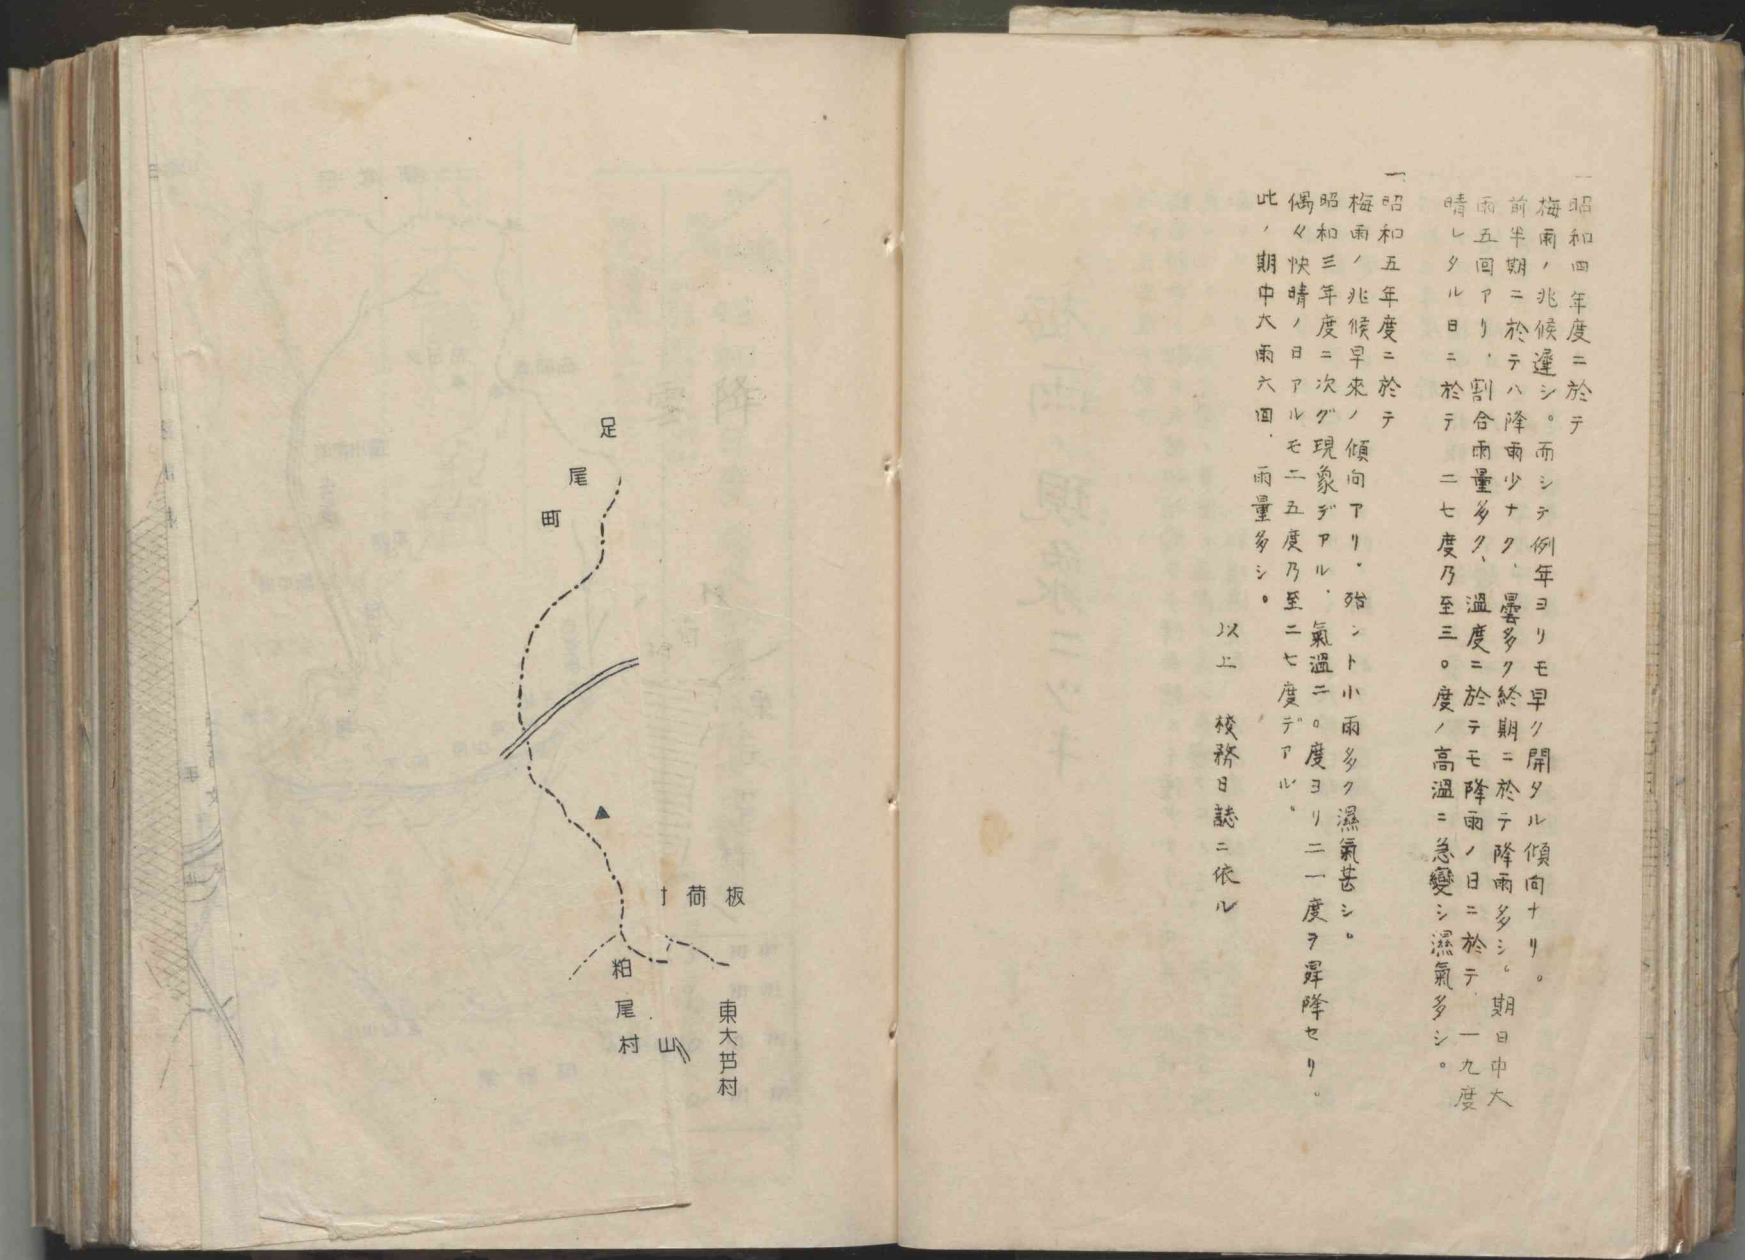 一
昭和四年度ニ於テ
梅雨ノ兆候遲シ。而シテ例年ヨリモ早ク開タル傾向ナリ。
前半期ニ於テハ降雨少ナク、曇多ク終期ニ於テ降雨多シ。期日中大
雨五回アリ、割合雨量多ク、溫度ニ於テモ降雨ノ日ニ於テ、一九度
晴レタル日ニ於テ 二七度乃至三〇度ノ高溫ニ急變シ濕氣多シ。
一、
昭和五年度ニ於テ
梅雨ノ兆候早來ノ傾向アリ。殆ンド小雨多ク濕氣甚シ。
昭和三年度ニ次グ現象デアル、氣溫二〇度ヨリ二一度ヲ昇降セリ。
偶々快晴ノ日アルモ二五度乃至二七度デアル。
此ノ期中大雨六回、雨量多シ。
以上 校務日誌ニ依ル
足尾町
板荷
粕尾村
東大芦村
山